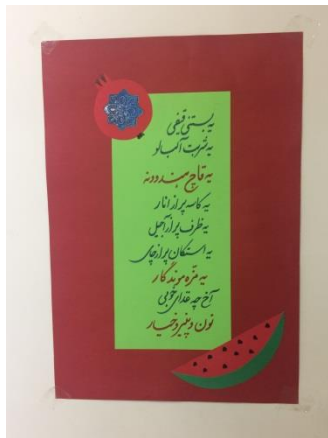 یه بستنی قیفی
یه شربت آلبالو
یه قاچ هندوونه
یه کاسه پر از انار
یه ظرف پر از آجیل
یه استکان پر از چای
یه مزه موندگار
آخ چه غذای خوبی
نون و پنیر و خیار